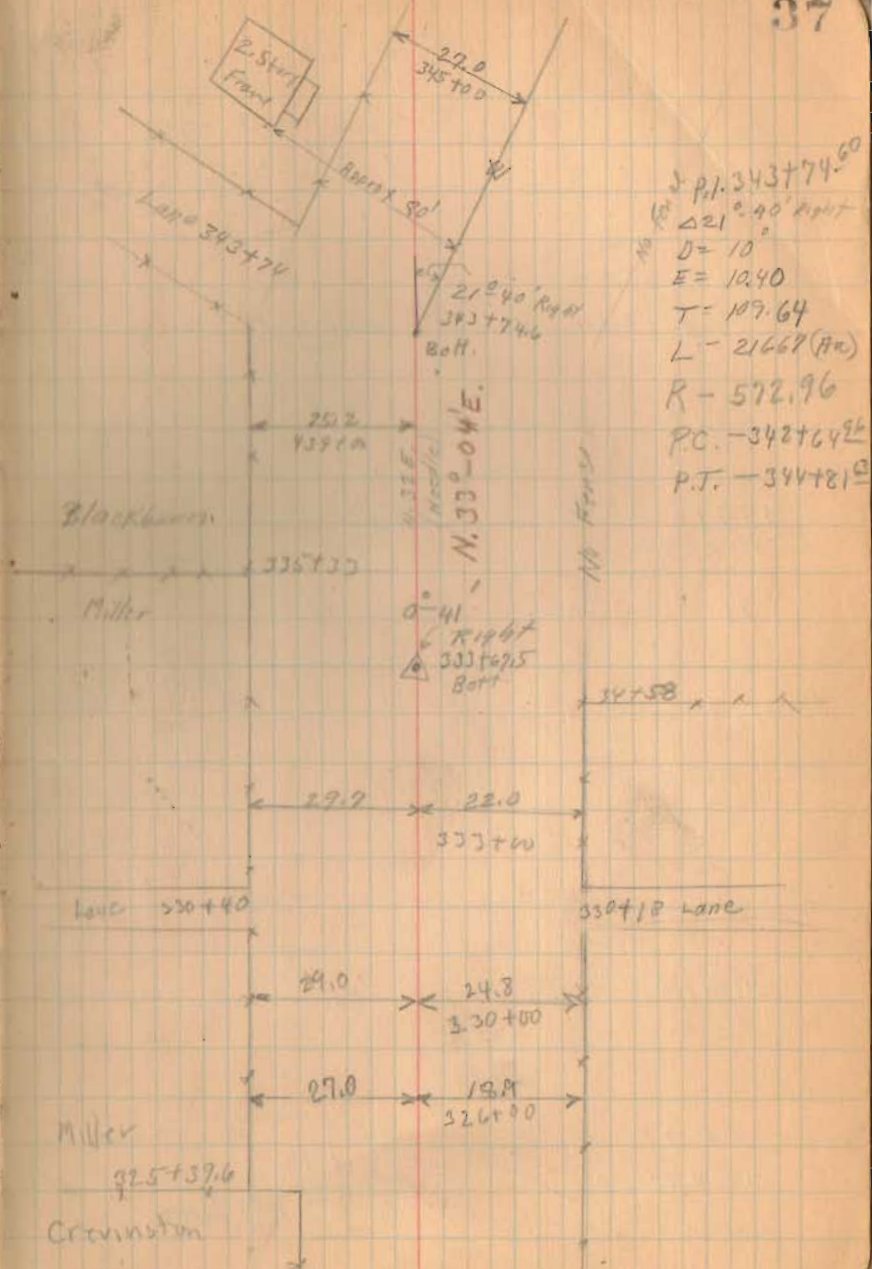 37
2. Story
Frame
27.0
345+00
Approx 80'
Lane 343+74
21°40' Right
343+74.6
Bolt.
P.I. 343+74.60
Δ21°-40' Right
D= 10°
E= 10.40
T= 109.64
L - 216.67 (Arc)
R - 572.96
P.C. - 342+64.96
P.T. - 344+81.63
25.2
439+00
N.32E.
Needle
N.33°-04'E.
No Fence
Blackburn
335+33
Miller
0°-41'
Right
333+67.5
Bolt
34+58
29.7
22.0
333+00
Lane 330+40
330+18 Lane
29.0
24.8
330+00
27.0
18.9
326+00
Miller
325+39.6